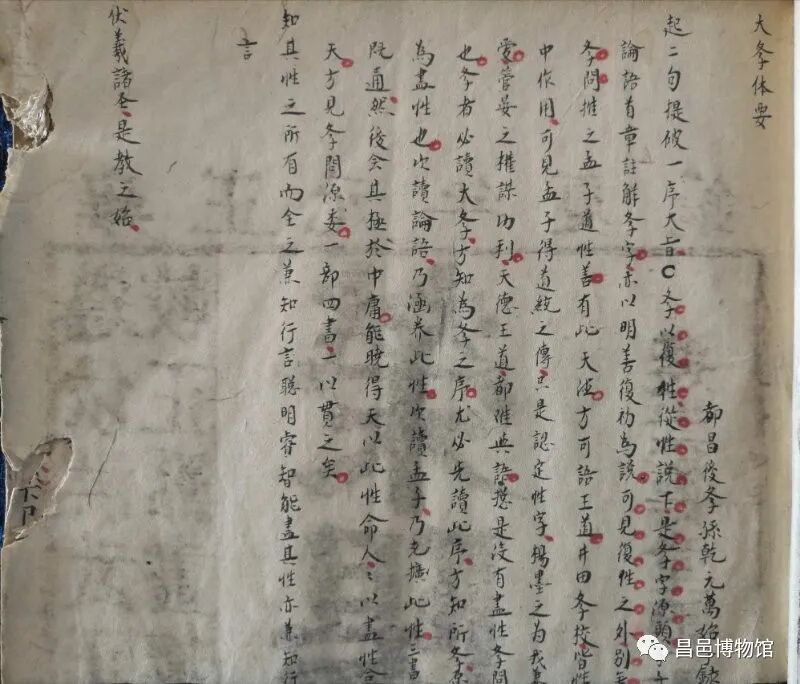 大学体要
都昌後学孫乾元萬
起二句提破一序大旨〇学以復性從性說下是学字源頭
論語首章註解学字亦以明善復初為說可見復性之外別無
学問推之孟子道性善有此天德方可語王道井田学校皆性
中作用可見孟子得道統之傳只是認定性字楊墨之為我兼
愛管晏之權謀功利天德王道都难與語揔是沒有盡性学問
也学者必讀大学方知為学之序尤必先讀此序方知所学原
為盡性也次讀論語乃涵养此性次讀孟子乃充擴此性三書
既通然後会其極於中庸能曉得天以此性命人人以盡性合
天方見学問源委一部四書一以貫之矣
知其性之所有而全之兼知行言聰明睿智能盡其性亦兼知行
言
伏羲諸圣是教之始
昌邑博物馆